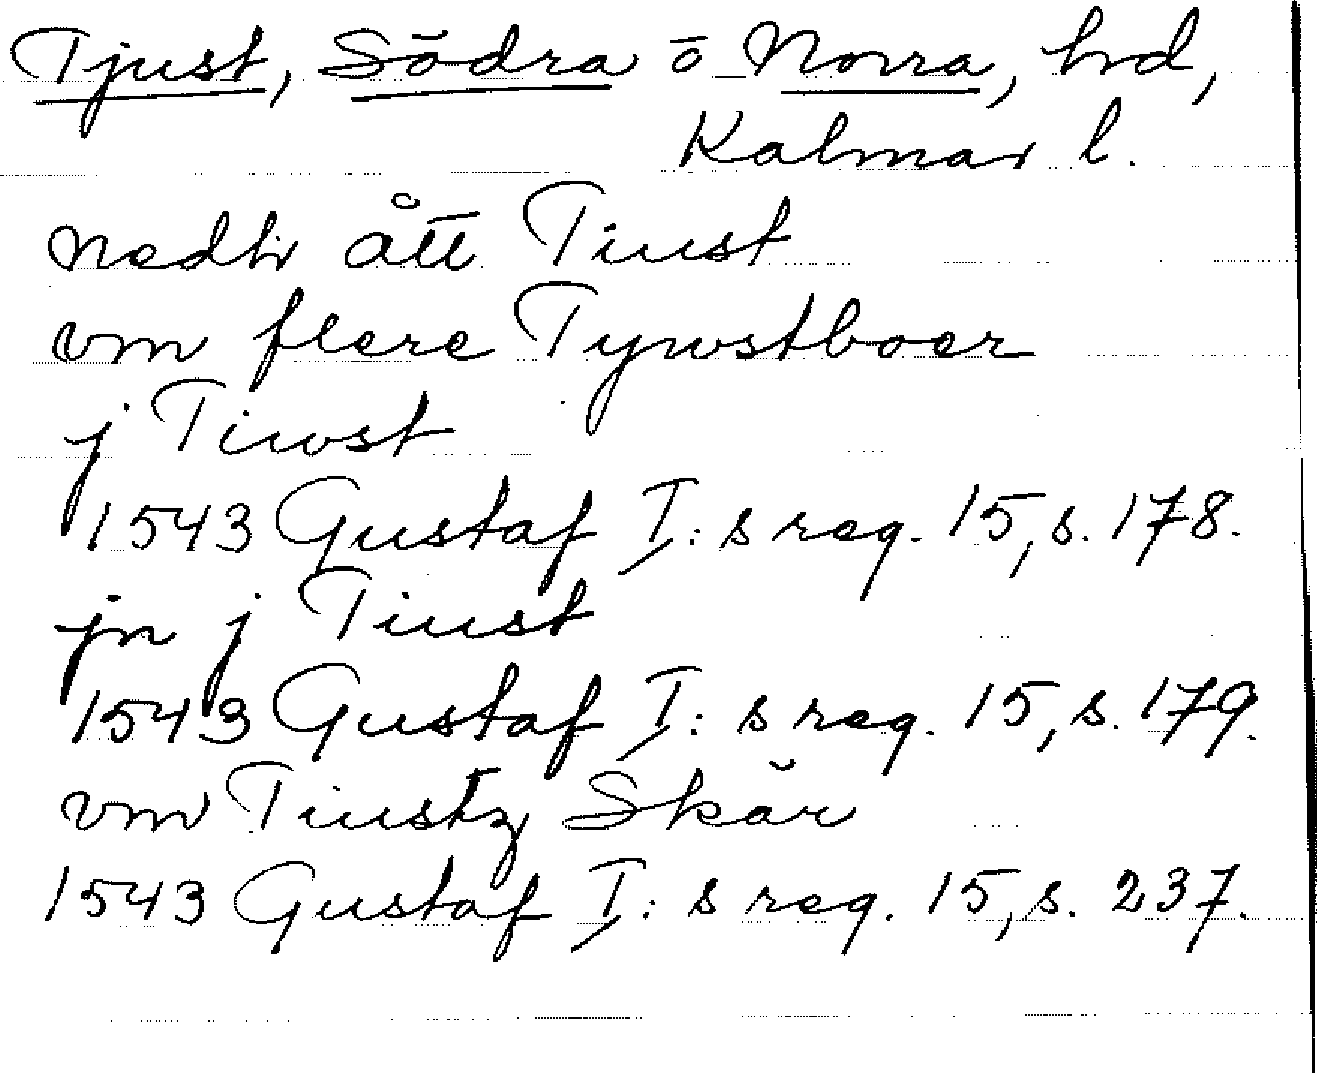 Tjust, Södra o Norra, hd,
Kalmar l.
nedhått Tiust
vm flere Tywstboer
j Tiwst
1543 Gustaf I:s reg. 15, s. 178.
jn j Tiust
1543 Gustaf I:s reg. 15, s. 179.
vm Tiustz Skär
1543 Gustaf I:s reg. 15, s. 237.